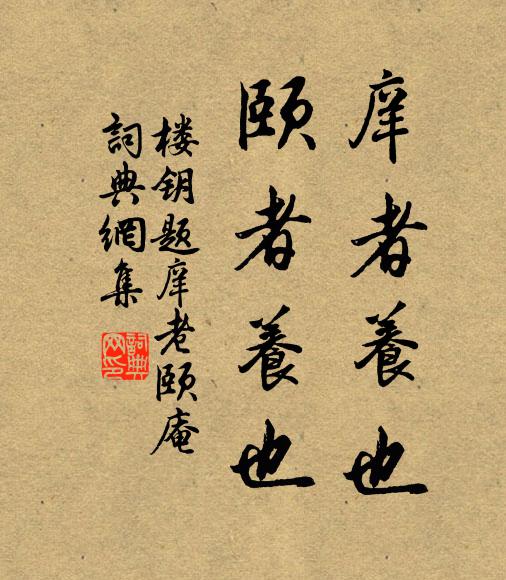 庠者養也
頤者養也
楼钥题庠老颐庵
詞典網集
詞典网印